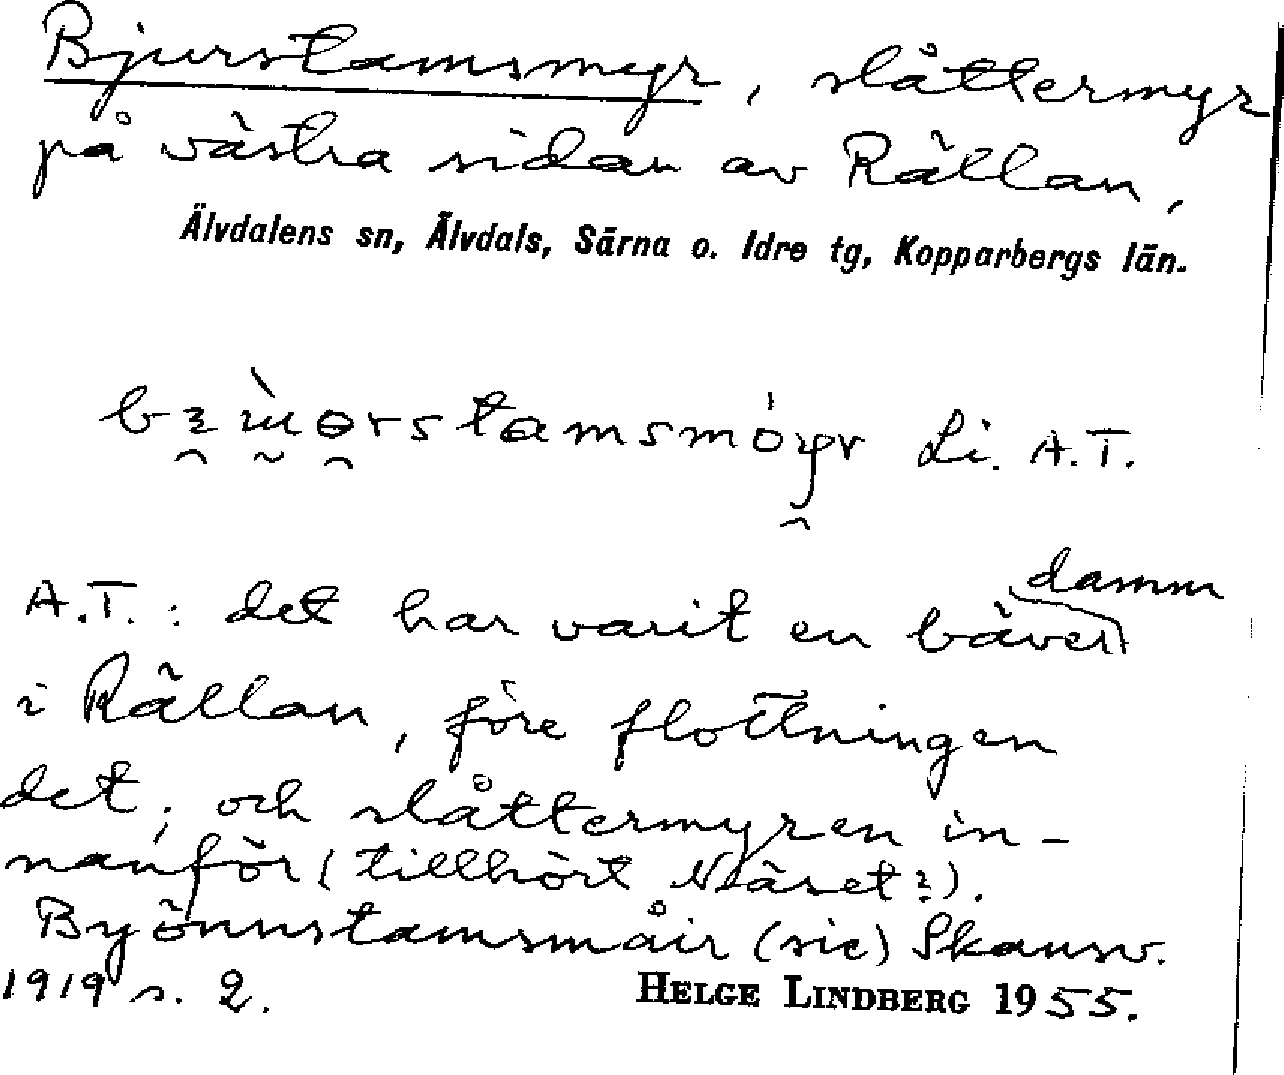 Bjurstamsmyr, slåttermyr
på västra sidan av Rällan,
Älvdalens sn, Älvdals, Särna o. Idre tg, Kopparbergs län.
Li. A.T.
A.T.: det har varit en bäverdamm
i Rällan, före flottningen
det; och slåttermyren in-
nanför (tillhört Näset?).
Byönnstamsmåir (sic) Skansv.
1919 s. 2.
HELGE LINDBERG 1955.